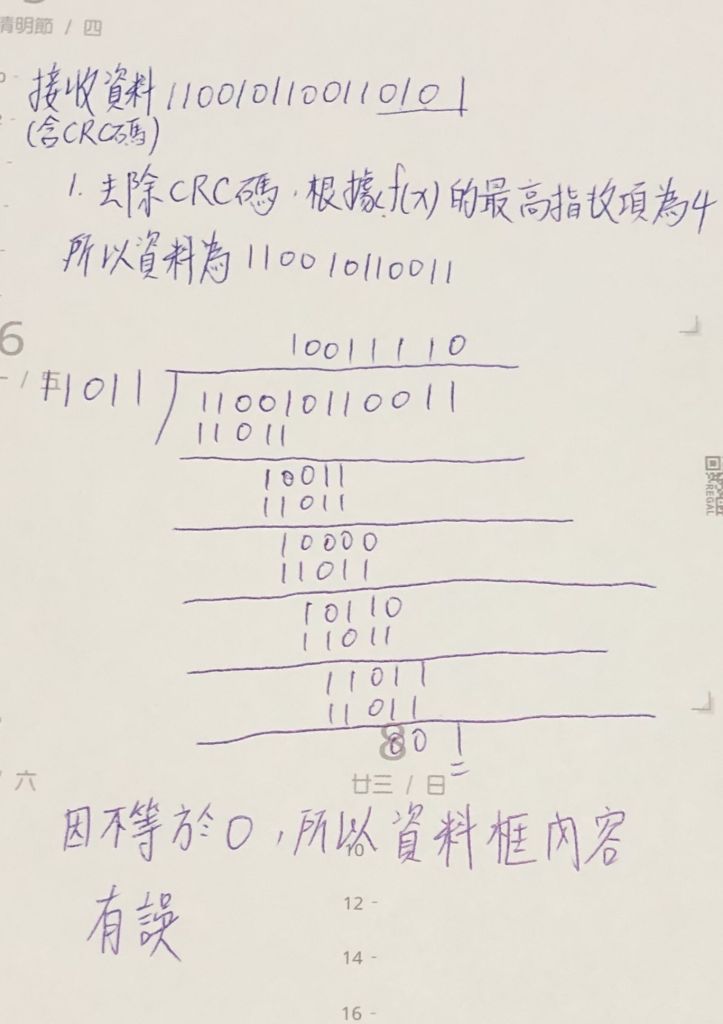 清明節 / 四
接收資料 1100101100110101
(含CRC碼)
1. 去除CRC碼,根據f(x)的最高指故項為4
所以資料為 110010110011
6
10011110
/ 五 11011 110010110011
11011
REGAL
10011
11011
10000
11011
10110
11011
11011
11011
8 001
/ 六 廿三 / 日
因不等於0,所以資料框內容
10
有誤
12 -
14 -
16 -